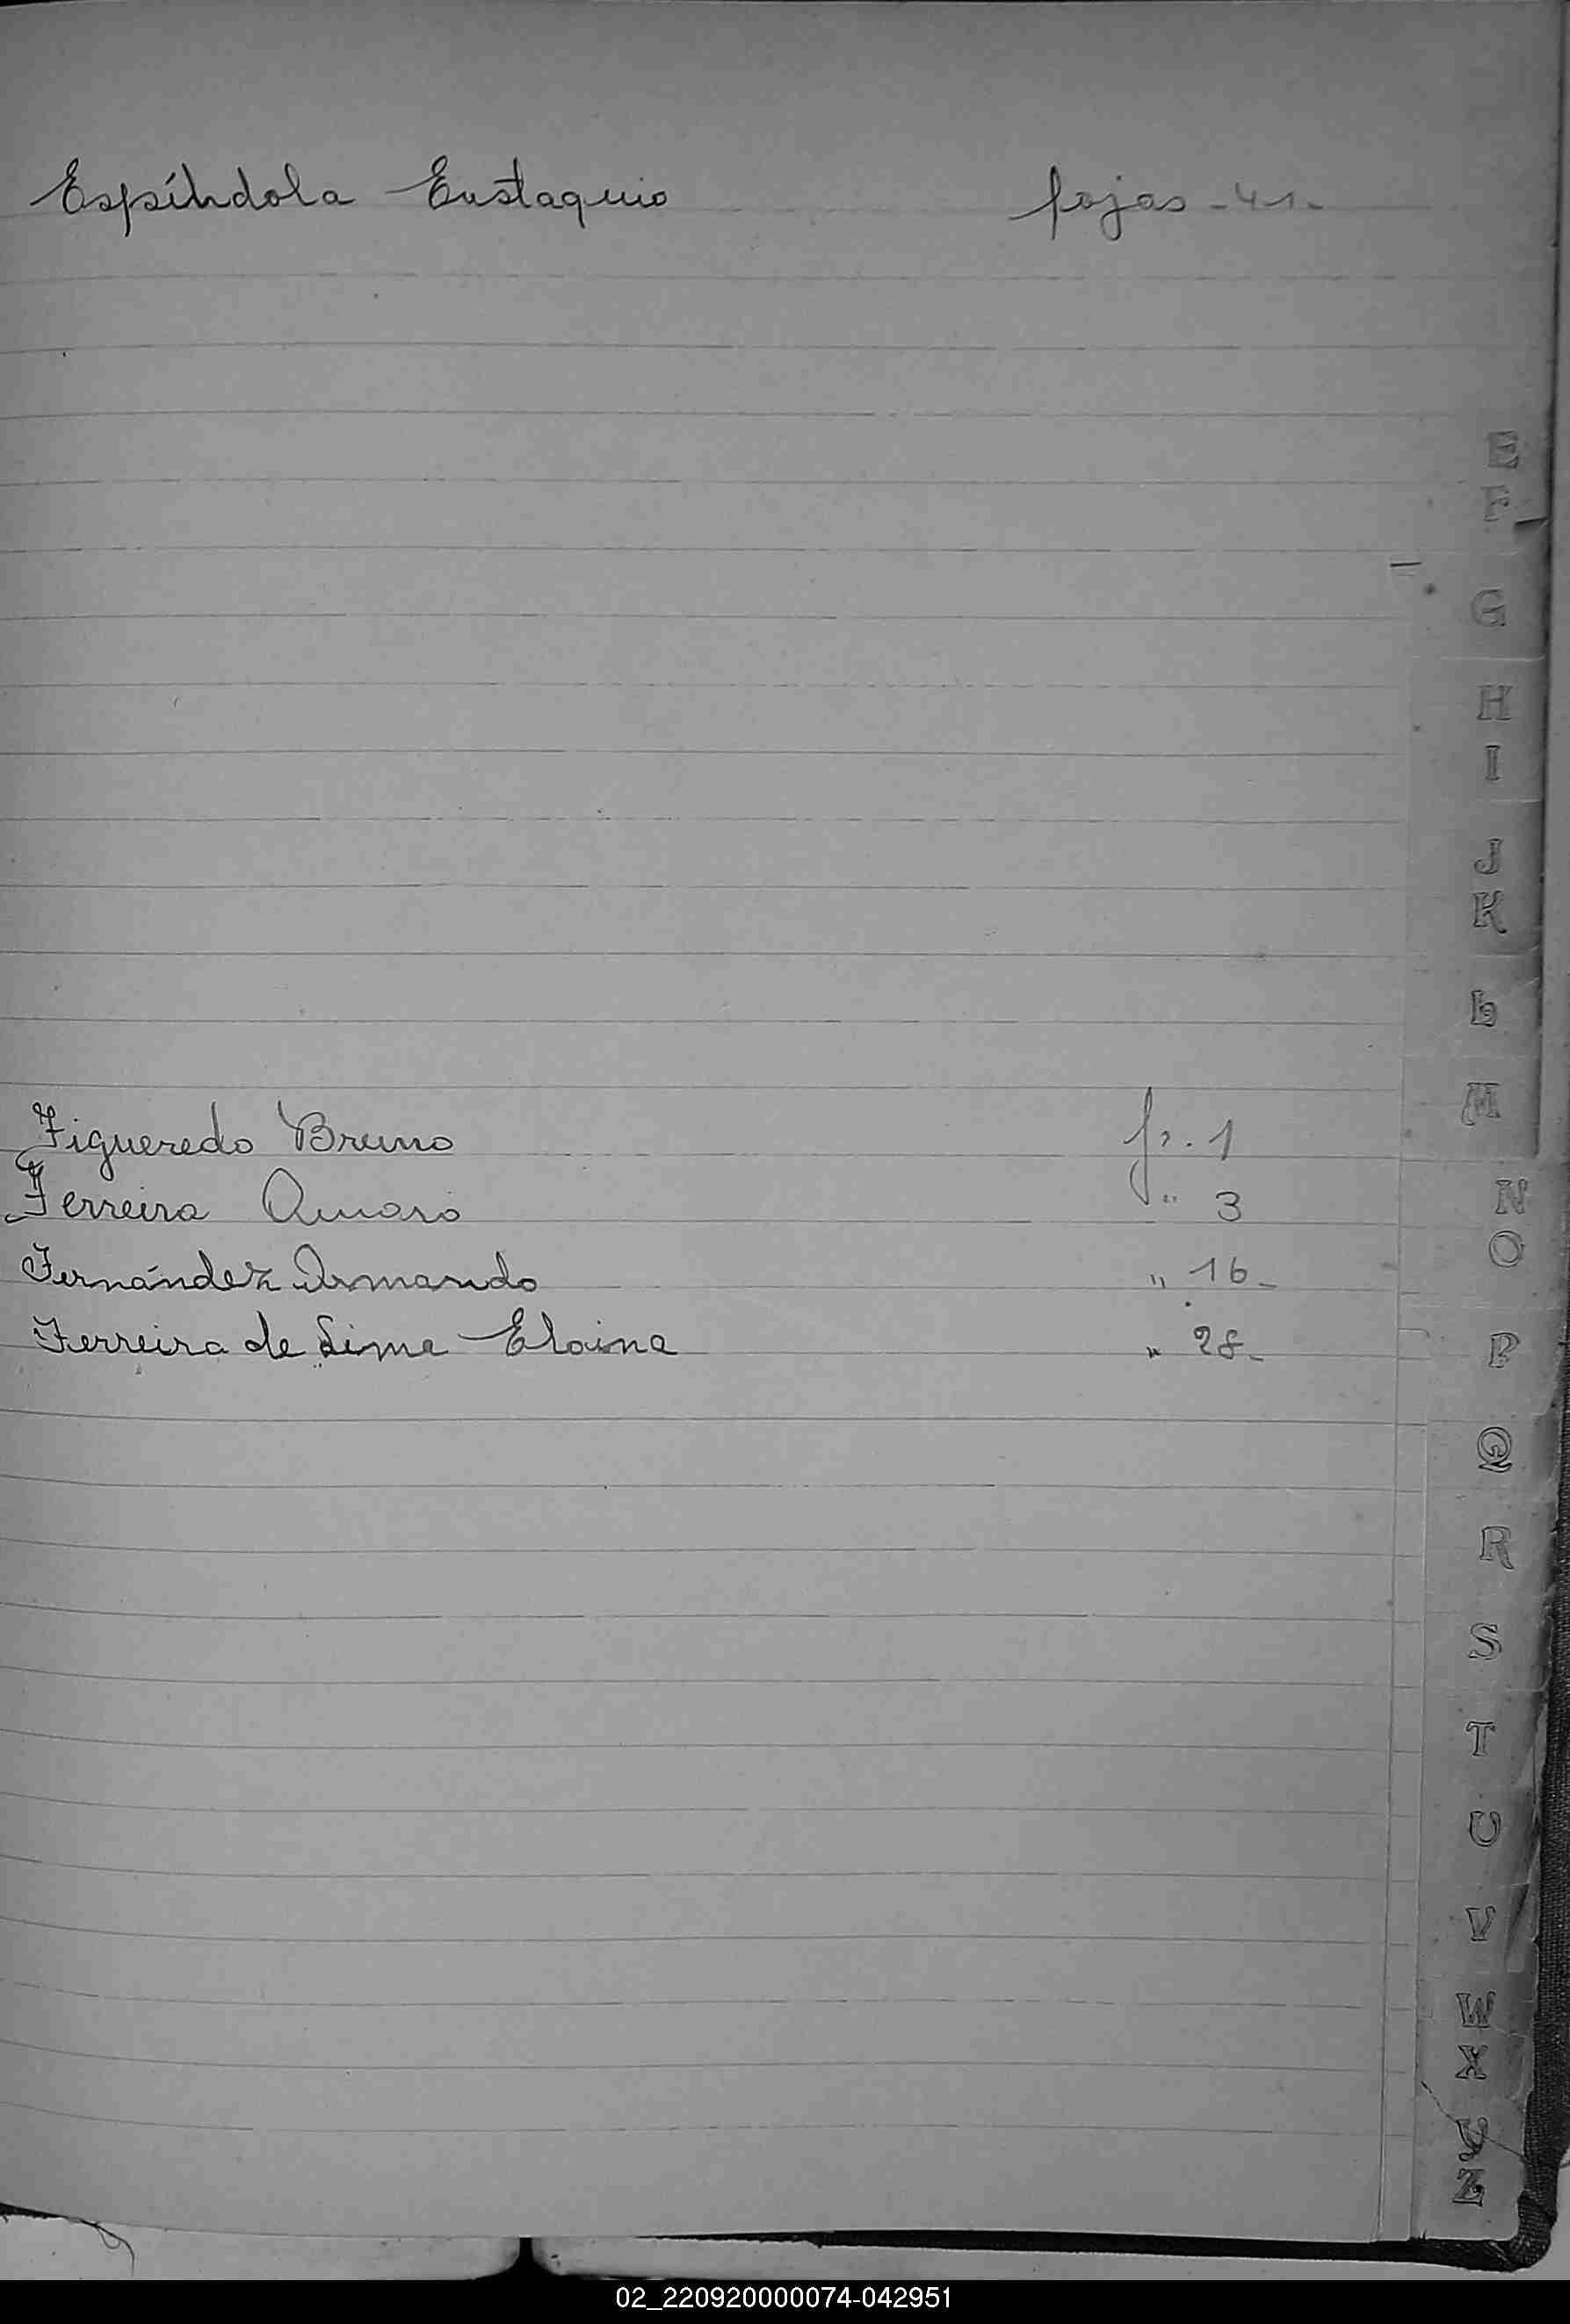 Espíndola Eustaquio fojas - 41 -
E
F
G
H
I
J
K
L
M
Figueredo Bruno fs. 1
Ferreira Amaro " 3
N
Fernández Armando " 16 -
O
Ferreira de Lima Elaine " 28 -
P
Q
R
S
T
U
V
W
X
Y
Z
02_220920000074-042951